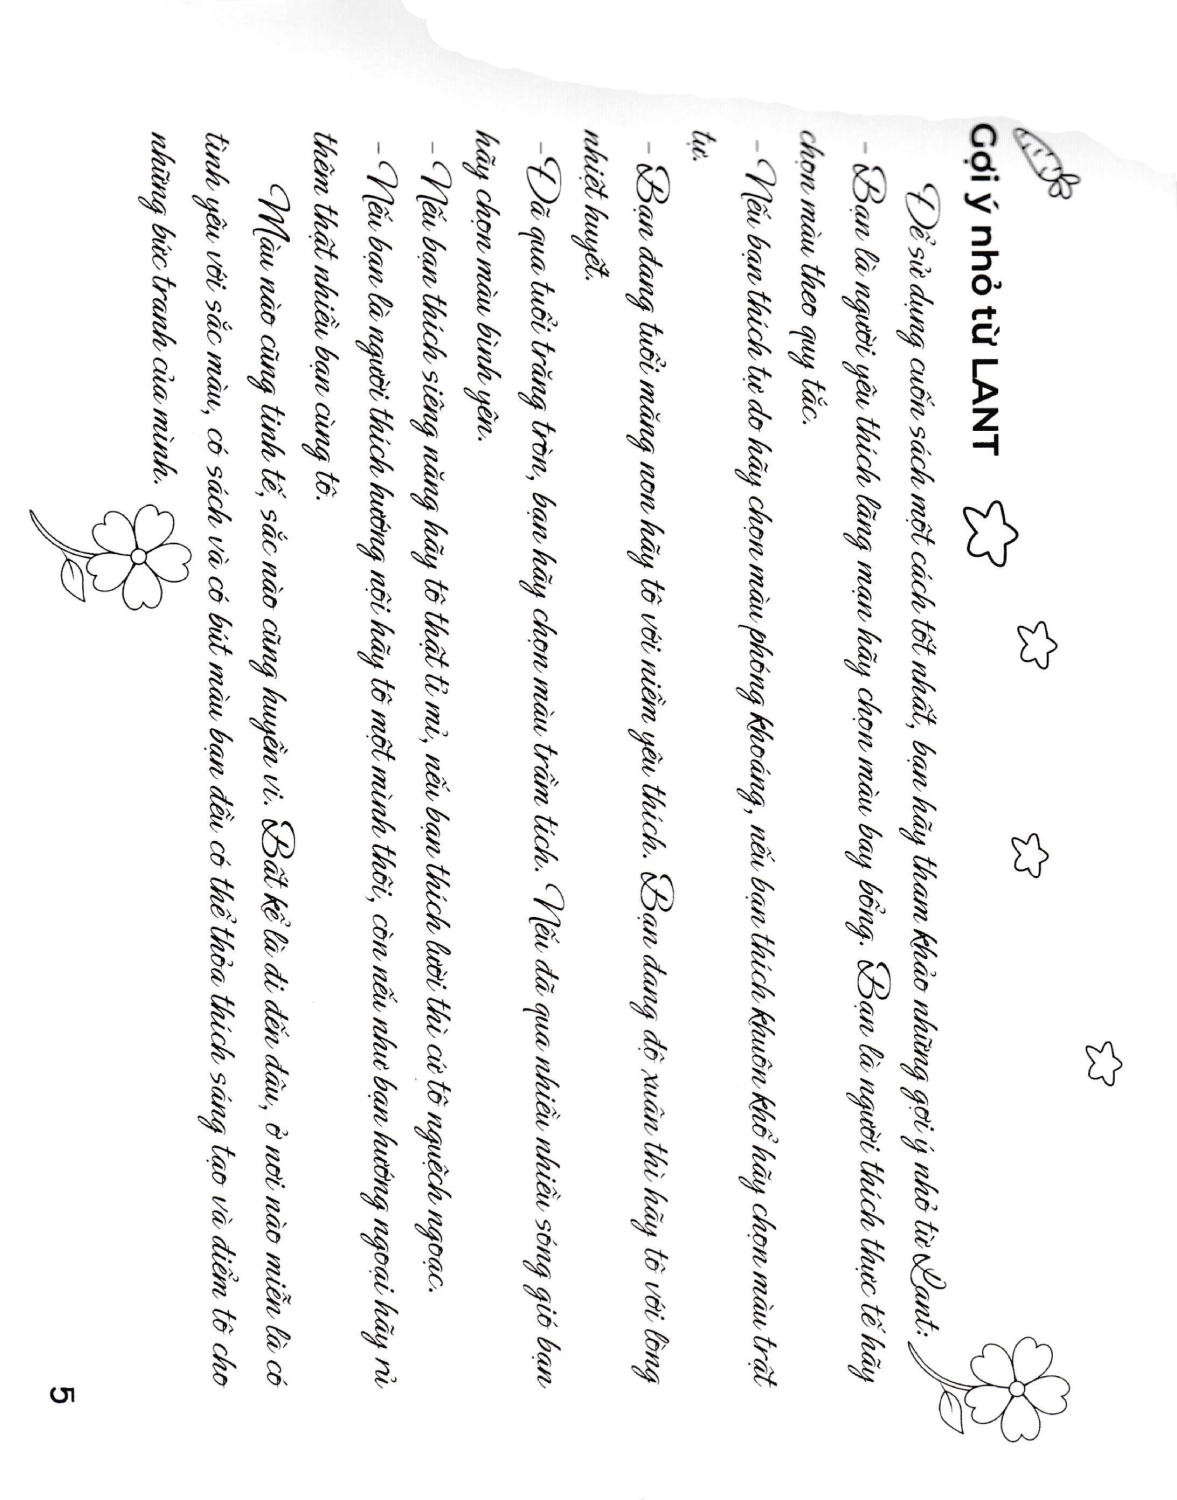 Gợi ý nhỏ từ LANT
Để sử dụng cuốn sách một cách tốt nhất, bạn hãy tham khảo những gợi ý nhỏ từ Lant:
- Bạn là người yêu thích lãng mạn hãy chọn màu bay bổng. Bạn là người thích thực tế hãy
chọn màu theo quy tắc.
- Nếu bạn thích tự do hãy chọn màu phóng khoáng, nếu bạn thích khuôn khổ hãy chọn màu trật
tự.
- Bạn đang tuổi măng non hãy tô với niềm yêu thích. Bạn đang độ xuân thì hãy tô với lòng
nhiệt huyết.
- Đã qua tuổi trăng tròn, bạn hãy chọn màu trầm tích. Nếu đã qua nhiều nhiều sóng gió bạn
hãy chọn màu bình yên.
- Nếu bạn thích siêng năng hãy tô thật tỉ mỉ, nếu bạn thích lười thì cứ tô nguệch ngoạc.
- Nếu bạn là người thích hướng nội hãy tô một mình thôi, còn nếu như bạn hướng ngoại hãy rủ
thêm thật nhiều bạn cùng tô.
Màu nào cũng tinh tế, sắc nào cũng huyền vi. Bất kể là đi đến đâu, ở nơi nào miễn là có
tình yêu với sắc màu, có sách và có bút màu bạn đều có thể thỏa thích sáng tạo và điểm tô cho
những bức tranh của mình.
5